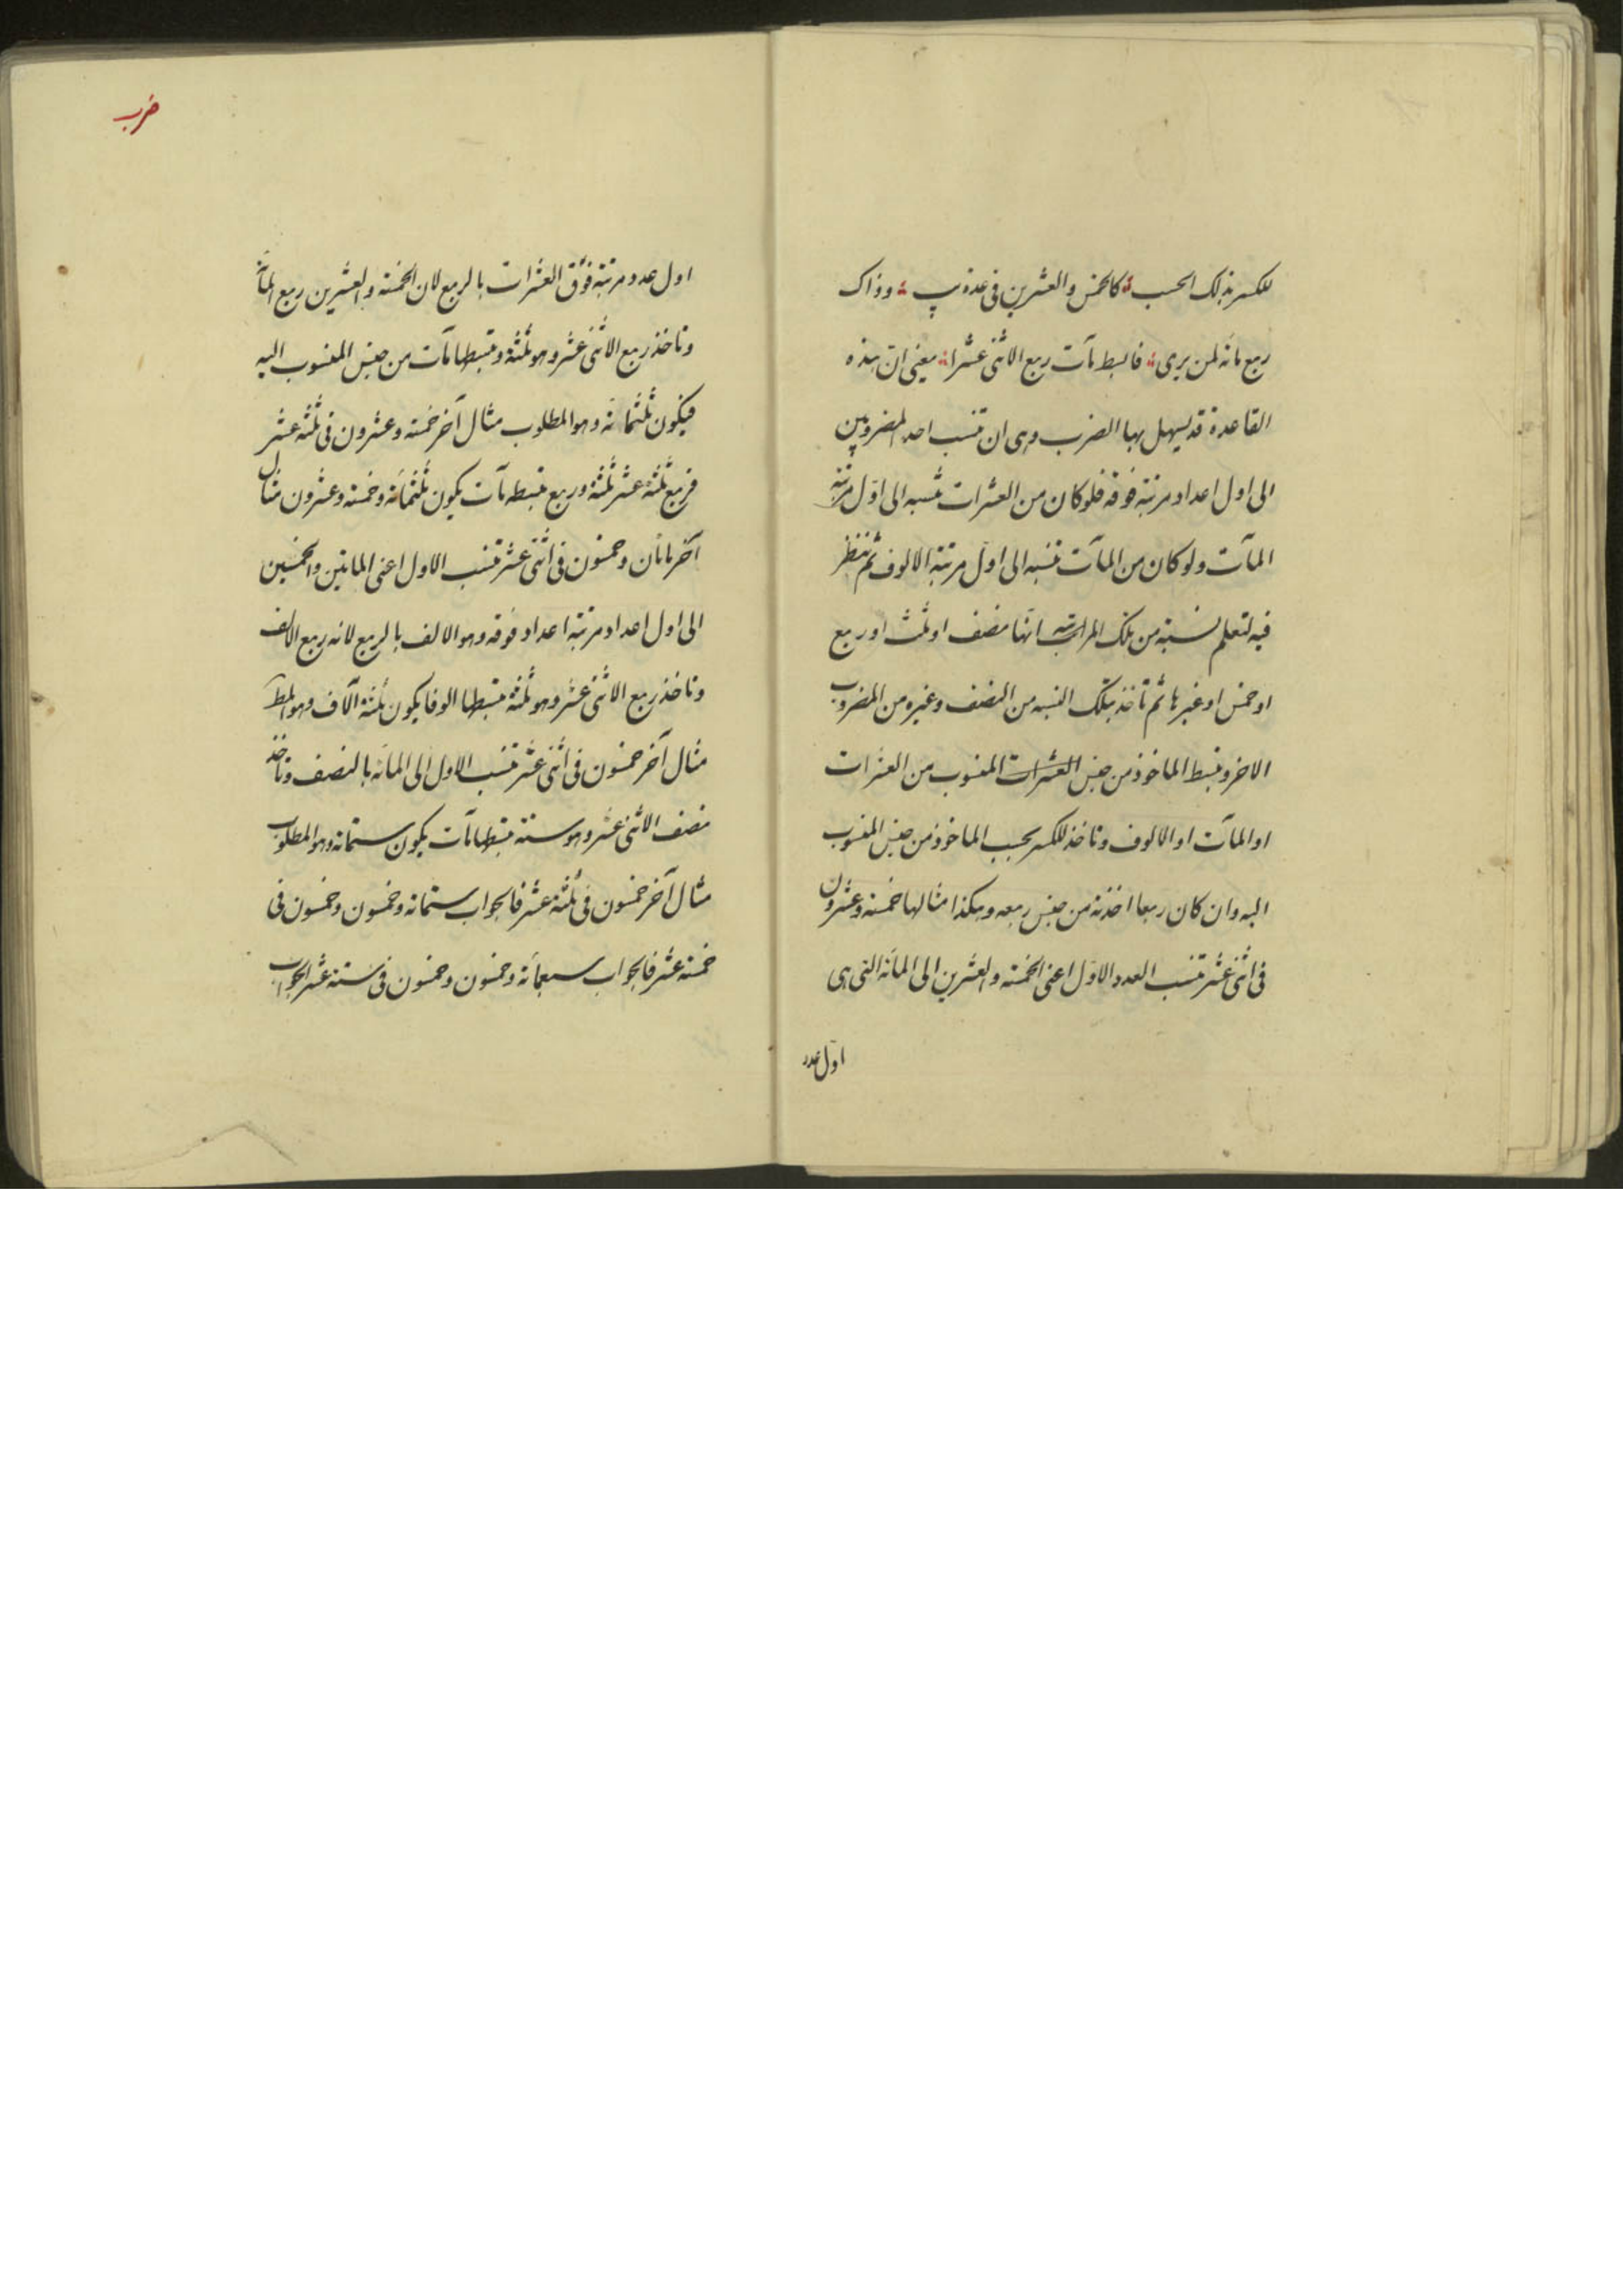 للكسر بذلك الحسب كالخمس والعشرين فى عدة يب وذاك
ربع مائة لمن يرى فابسط مآت ربع الاثنى عشرا يعنى ان هذه
القاعدة قد يسهل بها الضرب وهى ان تنسب احد المضروبين
الى اول اعداد مرتبة فوقه فلو كان من العشرات تنسبه الى اوّل مرتبة
المآت ولو كان من المآت تنسبه الى اول مرتبة الالوف ثم تنظر
فيه لتعلم نسبته من تلك المراتبة انها نصف او ثلث او ربع
او خمس او غيرها ثم تأخذ بتلك النسبه من النصف وغيره من المضروب
الاخر وتبسط الماخوذ من جنس العشرات المنسوب من العشرات
او المآت او الالوف وتاخذ للكسر بحسب الماخوذ من جنس المنسوب
اليه وان كان ربعا اخذته من جنس ربعه وهكذا مثالها خمسة وعشرون
فى اثنى عشر تنسب العدد الاوّل اعنى الخمسة والعشرين الى المأنة التى هى
اوّل عدد
ضرب
اول عدد مرتبة فوق العشرات بالربع لان الخمسة والعشرين ربع المأة
وتاخذ ربع الاثنى عشر وهو ثلثة وتبسطها مآت من جنس المنسوب اليه
فيكون ثلثمائة وهو المطلوب مثال آخر خمسة وعشرون فى ثلثة عشر
فربع ثلثة عشر ثلثة وربع تبسطه مآت يكون ثلثمائة وخمسة وعشرون مثال
آخر مائتان وخمسون فى اثنى عشر تنسب الاول اعنى المائتين والخمسين
الى اول اعداد مرتبة اعداد فوقه وهو الالف بالربع لانه ربع الالف
وتاخذ ربع الاثنى عشر وهو ثلثة تبسطها الوفا يكون ثلثة آلاف وهو المط
مثال آخر خمسون فى اثنى عشر تنسب الاول الى المائة بالنصف وتاخذ
نصف الاثنى عشر وهو ستة تبسطها مآت يكون ستمائة وهو المطلوب
مثال آخر خمسون فى ثلثة عشر فالجواب ستمائة وخمسون وخمسون فى
خمسة عشر فالجواب سبعمائة وخمسون وخمسون فى ستة عشر الجواب